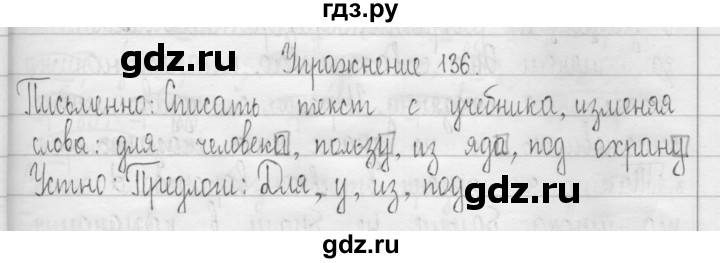 гдз.ру
Упражнение 136.
Письменно: Списать текст с учебника, изменяя
слова: для человека, пользу, из яда, под охрану
Устно: Предлоги: Для, у, из, под
gdz.ru
gdz.ru
gdz.ru
gdz.ru